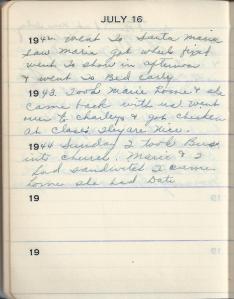 JULY 16
1942 Went To Santa Maria
Saw Maria get wheel fixed
went to show in afternoon
& went to Bed early
1943. Took Marie Home & she
came back with us went
over to Charleys & got chicken
at Clases They are Nice.
1944 Sunday I took Bus
into Church. Marie & I
had sandwiches I came
home she had Date
19
19